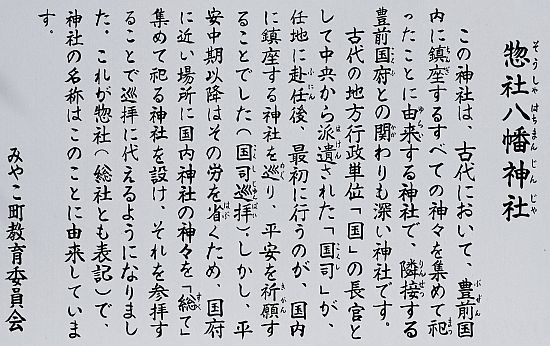 惣社八幡神社
そうしゃはちまんじんじゃ
この神社は、古代において、豊前国
内に鎮座するすべての神々を集めて祀
ったことに由来する神社で、隣接する
豊前国府との関わりも深い神社です。
古代の地方行政単位「国」の長官と
して中央から派遣された「国司」が、
任地に赴任後、最初に行うのが、国内
に鎮座する神社を巡り、平安を祈願す
ることでした(国司巡拝)。しかし、平
安中期以降はその労を省くため、国府
に近い場所に国内神社の神々を「総て」
集めて祀る神社を設け、それを参拝す
ることで巡拝に代えるようになりまし
た。これが惣社(総社とも表記)で、
神社の名称はこのことに由来していま
す。
みやこ町教育委員会